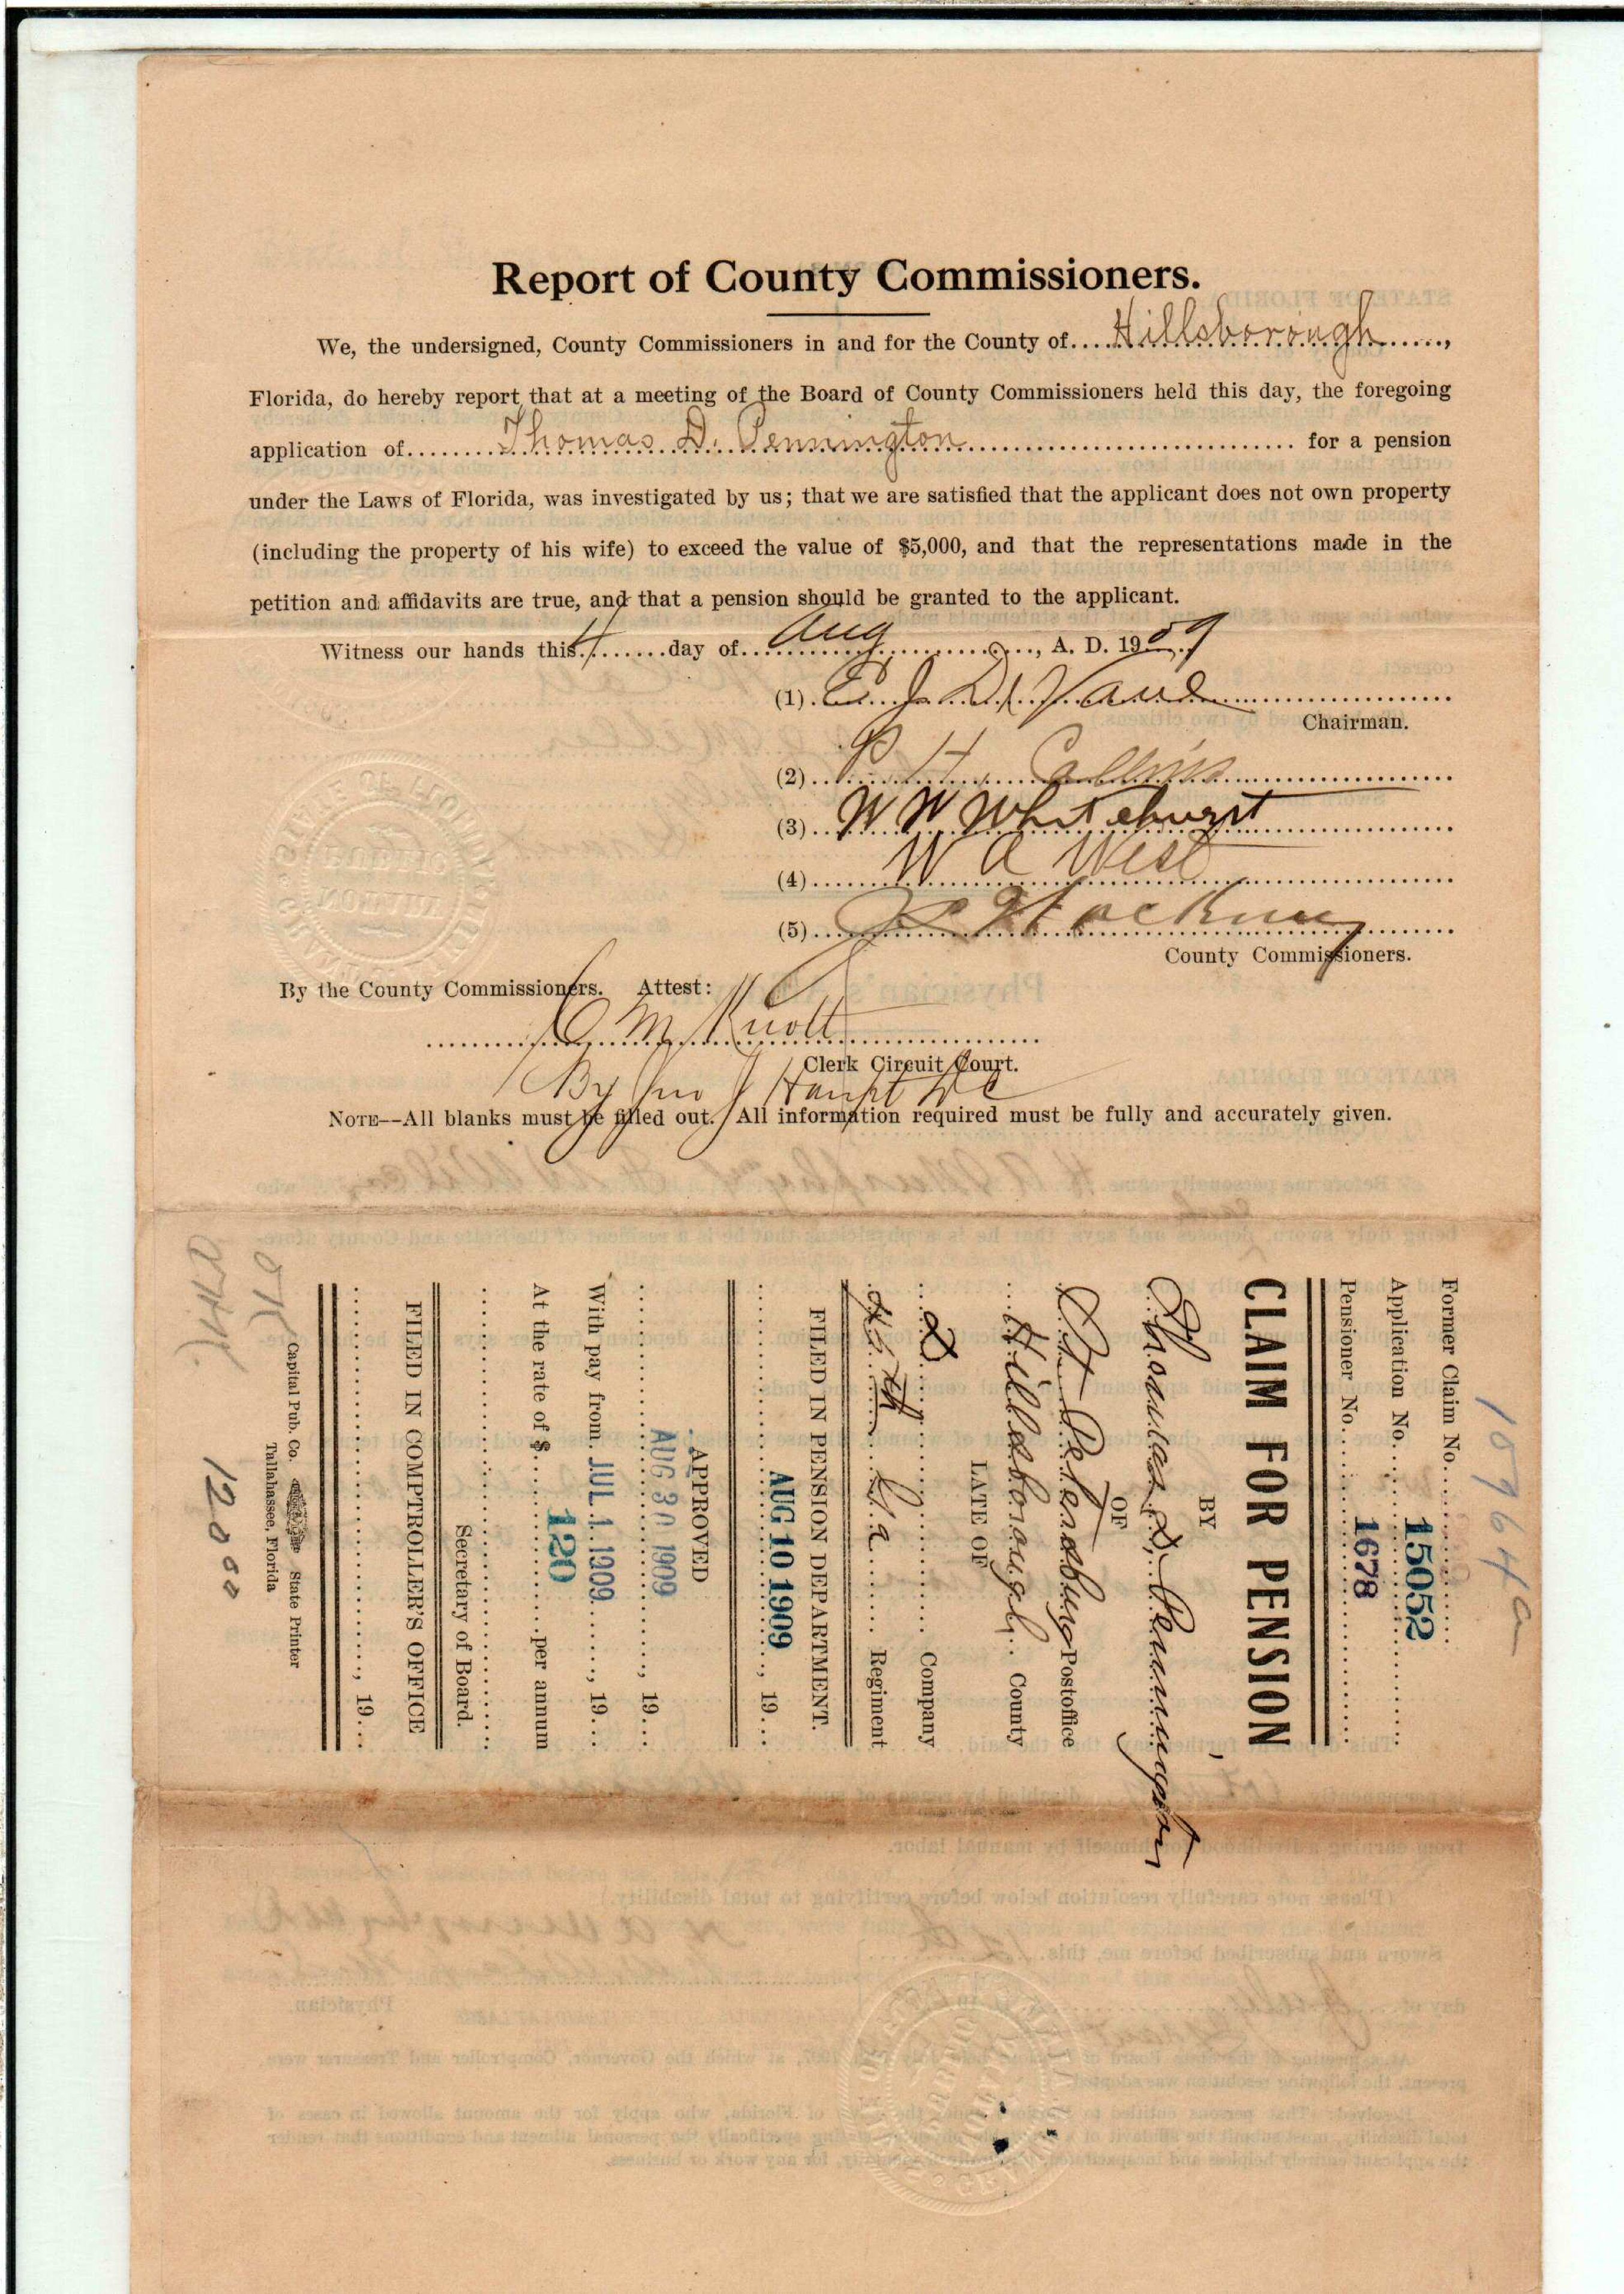 Report of County Commissioners.
We, the undersigned, County Commissioners in and for the County of....Hillsborough......,
Florida, do hereby report that at a meeting of the Board of County Commissioners held this day, the foregoing
application of........Thomas D. Pennington........ for a pension
under the Laws of Florida, was investigated by us; that we are satisfied that the applicant does not own property
(including the property of his wife) to exceed the value of $5,000, and that the representations made in the
petition and affidavits are true, and that a pension should be granted to the applicant.
Witness our hands this 4 day of Aug, A. D. 1909
(1)
Chairman.
(2) P H Collins
(3) W W Whitehurst
(4) W A West
(5)
County Commissioners.
By the County Commissioners. Attest:
Knott
Clerk Circuit Court.
By Jno J Haupt DC
NOTE--All blanks must be filled out. All information required must be fully and accurately given.
10964a
Former Claim No.
Application No. 15052
Pensioner No. 1678
CLAIM FOR PENSION
BY
Thomas D. Pennington
OF
St Petersburg Postoffice
Hillsborough County
LATE OF
D Company
Ga Regiment
FILED IN PENSION DEPARTMENT.
AUG 10 1909, 19...
APPROVED
AUG 30 1909, 19...
With pay from JUL 1 1909, 19...
At the rate of $ 120 per annum
Secretary of Board.
FILED IN COMPTROLLER'S OFFICE
, 19...
Capital Pub. Co. State Printer
Tallahassee, Florida
OK
12000